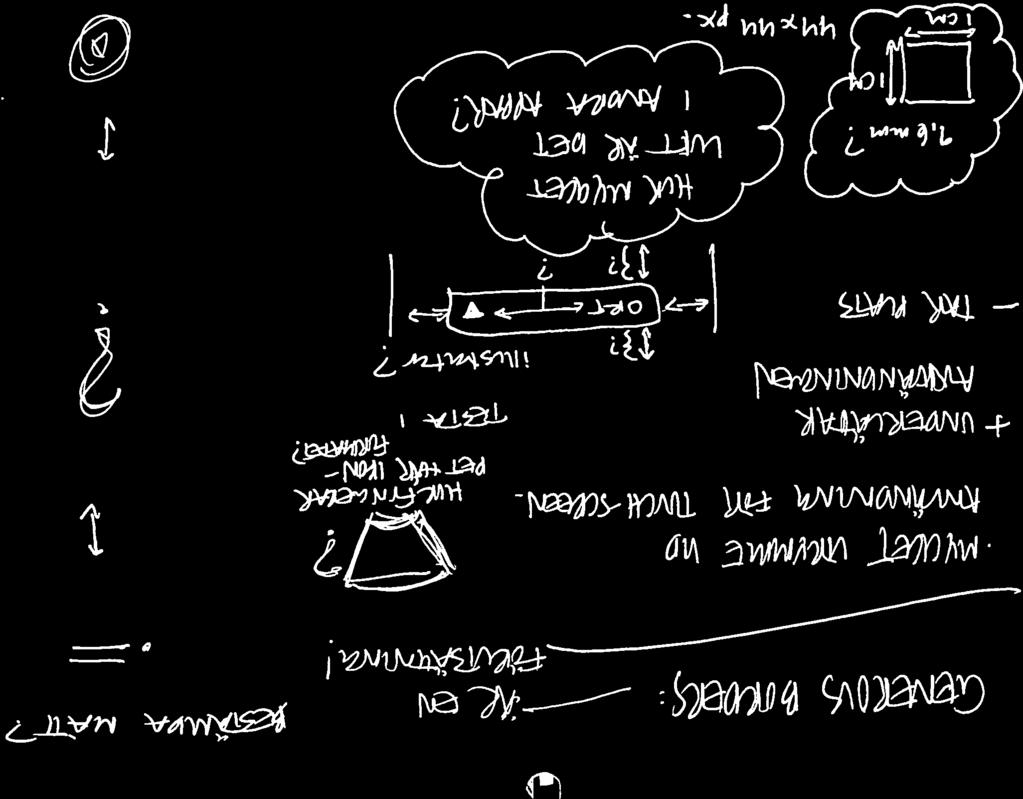 GENEROUS BORDERS:
ÄR EN
FÖRUTSÄTTNING!
BESTÄMDA MÅTT?
• MYCKET UTRYMME VID
ANVÄNDNING FÖR TOUCH-SCREEN.
+ UNDERLÄTTAR
ANVÄNDNINGEN
- TAR PLATS
?
HUR FUNGERAR
DET HÄR IKON-
FORMATET?
TESTA I
illustrator?
}?
ORT
}?
?
HUR MYCKET
LUFT ÄR DET
I ANDRA APPAR?
9,6 mm?
1 CM
1 CM
44 x 44 px.
?